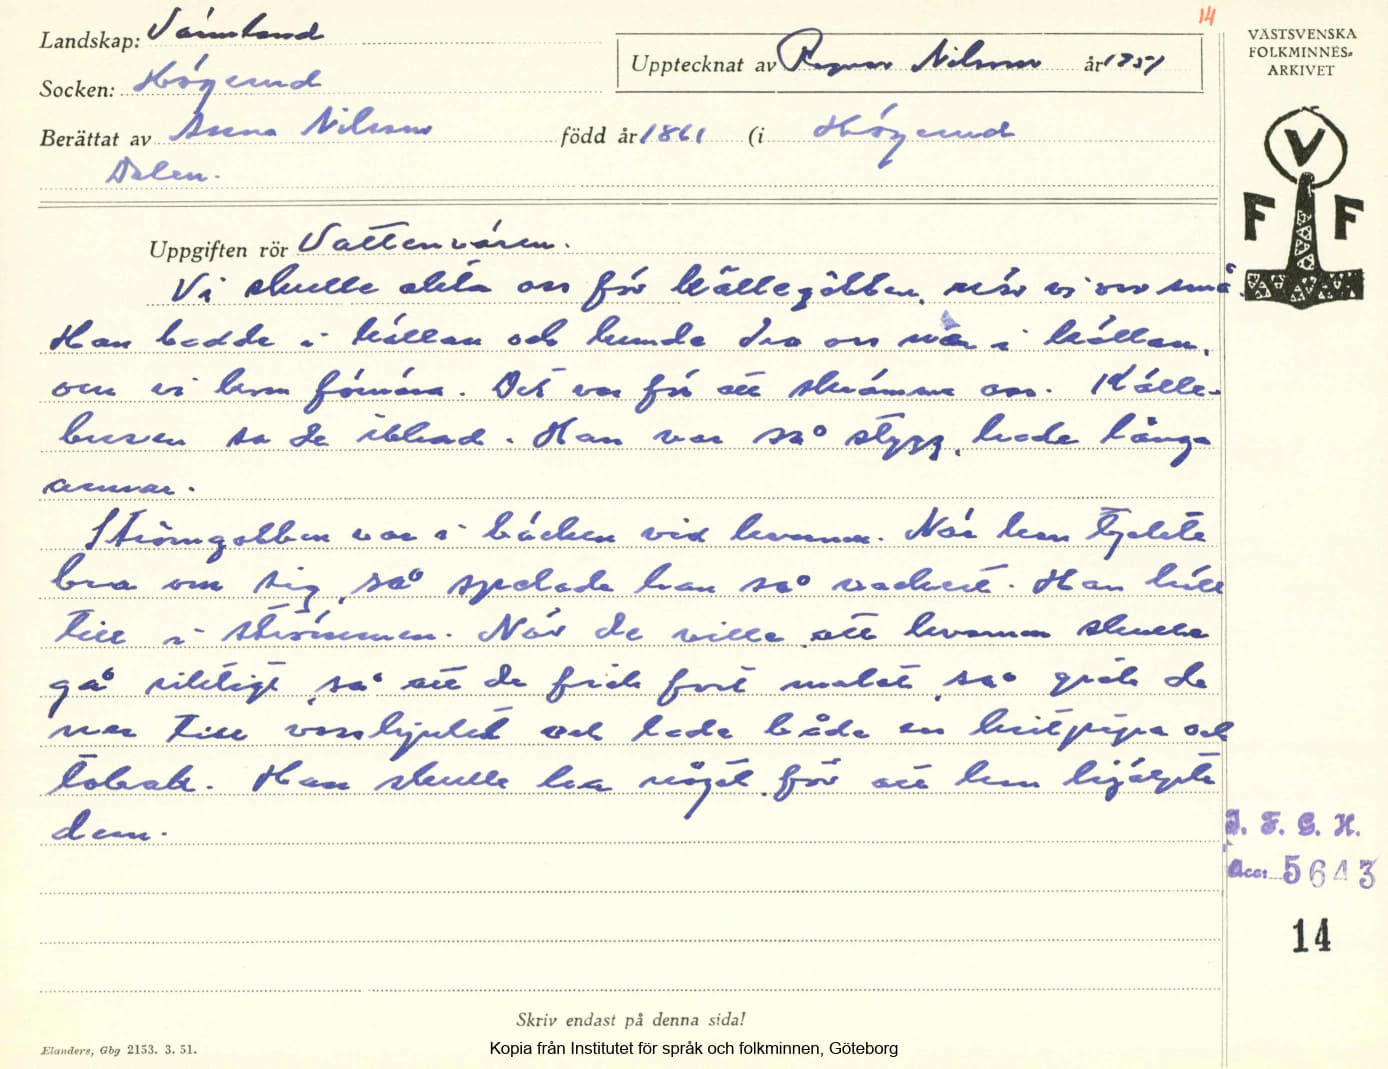 14
Landskap: Värmland
Upptecknat av Ragnar Nilsson år 1951
Socken: Högerud
Berättat av Anna Nilsson född år 1861 (i Högerud
Dalen.
VÄSTSVENSKA
FOLKMINNES-
ARKIVET
V
F F
Uppgiften rör Vattenväsen.
Vi skulle akta oss för källegôbben, när vi var små.
Han bodde i källan och kunde dra oss ner i källan,
om vi kom för nära. Det var för att skrämma oss. Källe-
busen sa de ibland. Han var så stygg, hade långa
armar.
Strömgobben var i bäcken vid kvarna. När han tyckte
bra om sig, så spelade han så vackert. Han höll
till i strömmen. När de ville att kvarnen skulle
gå riktigt, så att de fick fort malet, så gick de
ner till vasshjulet och lade både en kritpipa och
tobak. Han skulle ha något för att han hjälpte
dem.
I. F. G. H.
Acc: 5643
14
Skriv endast på denna sida!
Elanders, Gbg 2153. 3. 51.
Kopia från Institutet för språk och folkminnen, Göteborg